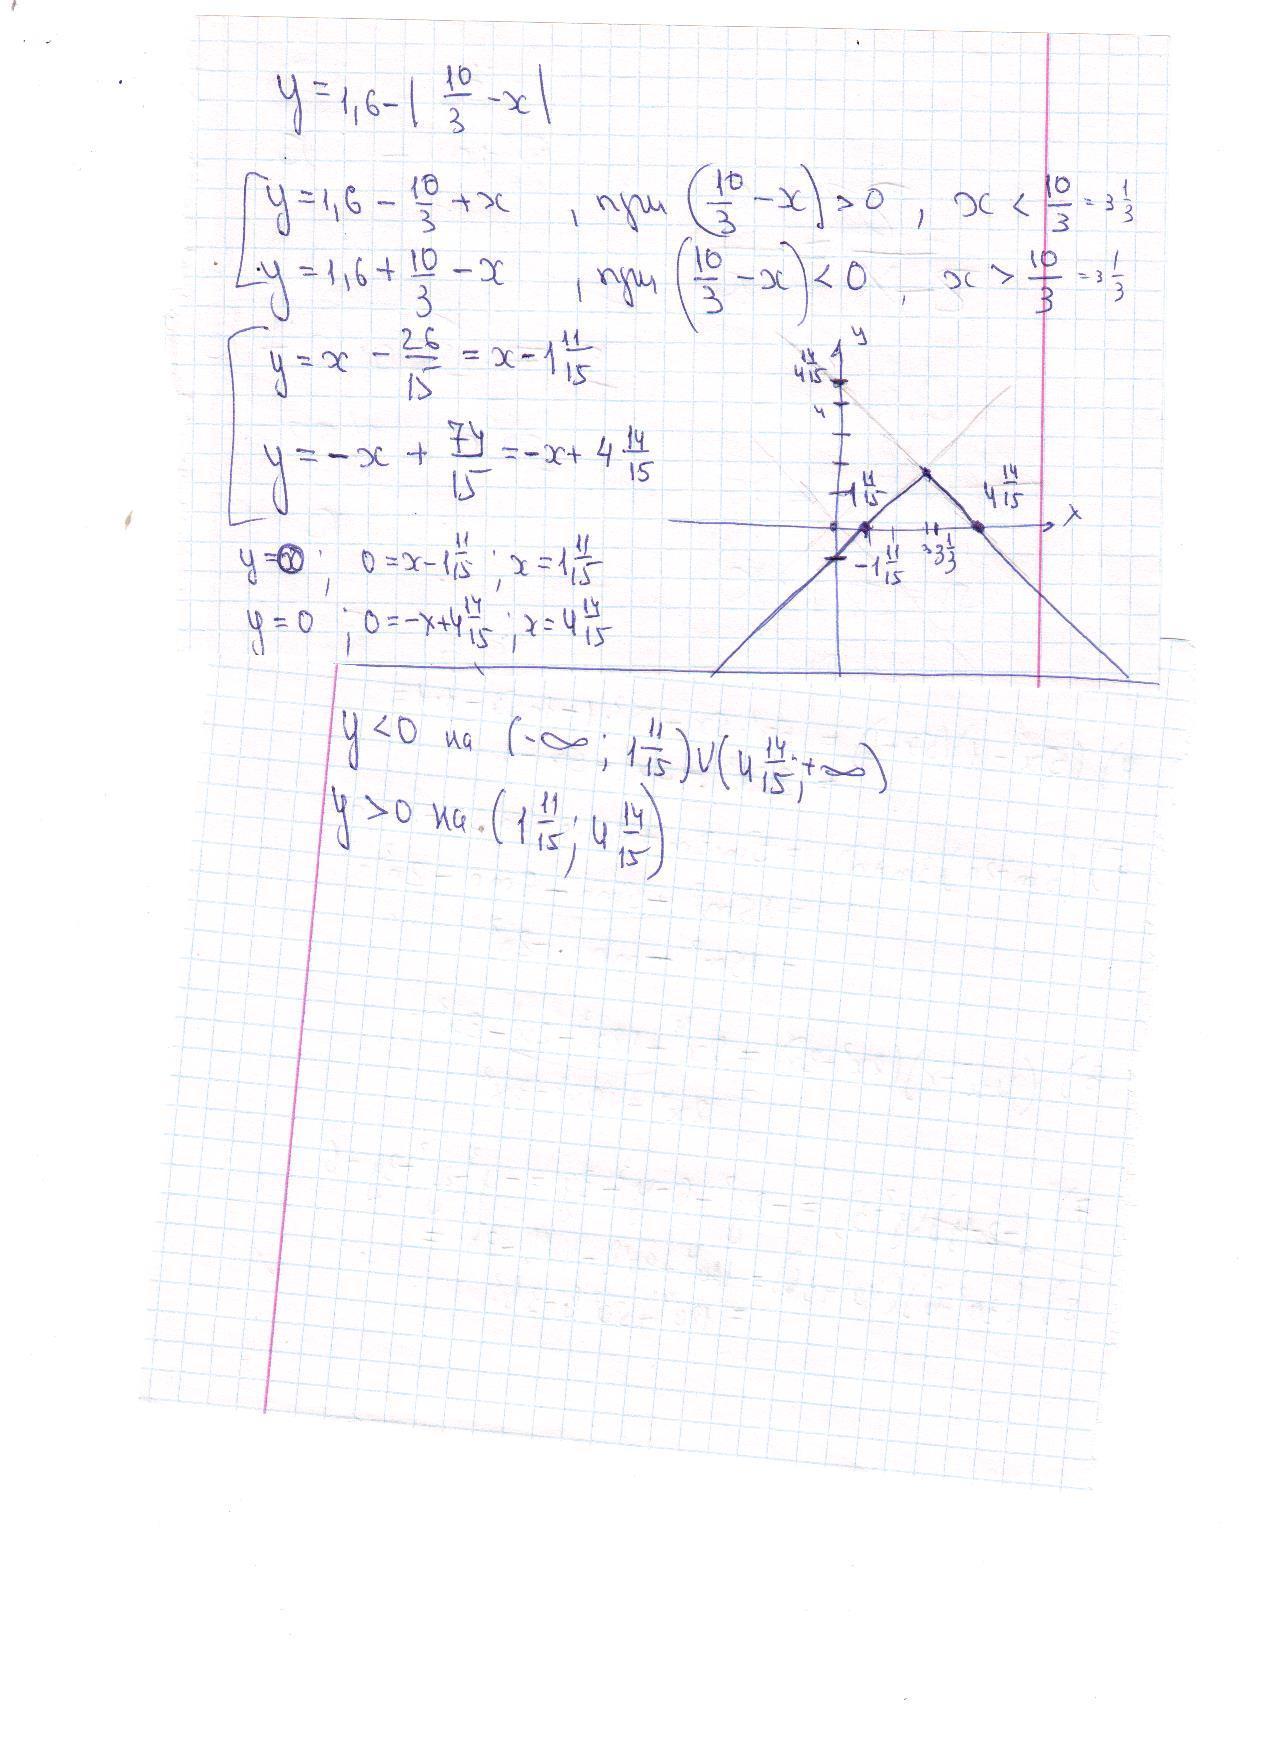 y = 1,6 - | 10/3 - x |
y = 1,6 - 10/3 + x , при (10/3 - x) > 0 , x < 10/3 = 3 1/3
y = 1,6 + 10/3 - x , при (10/3 - x) < 0 , x > 10/3 = 3 1/3
y = x - 26/15 = x - 1 11/15
y = -x + 74/15 = -x + 4 14/15
y = 0 ; 0 = x - 1 11/15 ; x = 1 11/15
y = 0 ; 0 = -x + 4 14/15 ; x = 4 14/15
y
4 14/15
4
1 11/15
4 14/15
x
-1 11/15
3
3 1/3
y < 0 на (-∞ ; 1 11/15) ∪ (4 14/15 ; +∞)
y > 0 на (1 11/15 ; 4 14/15)